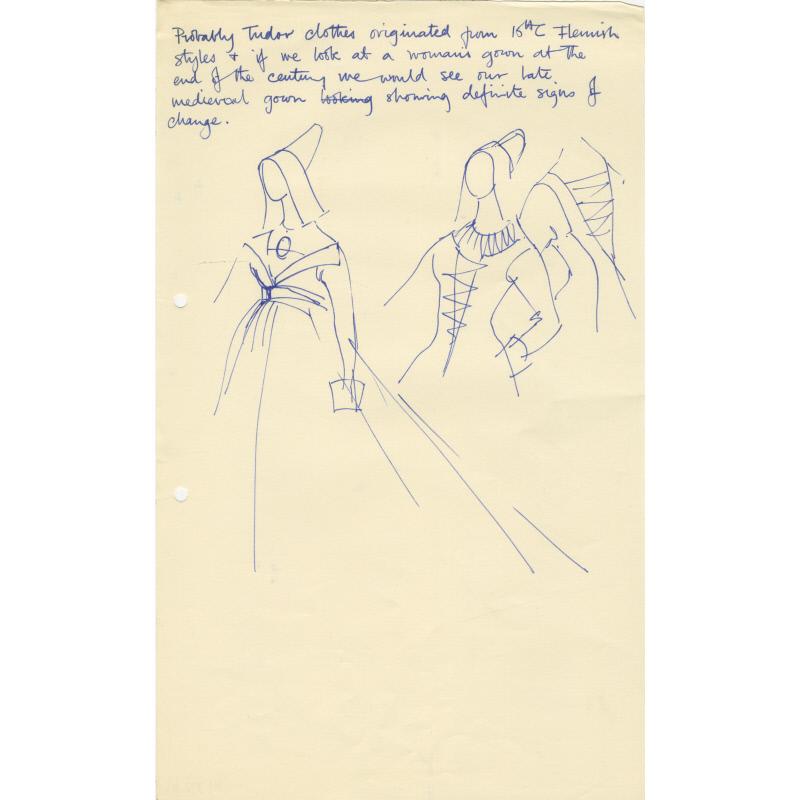 Probably Tudor clothes originated from 15thC Flemish
styles + if we look at a woman's gown at the
end of the century we would see our late
medieval gown looking showing definite signs of
change.